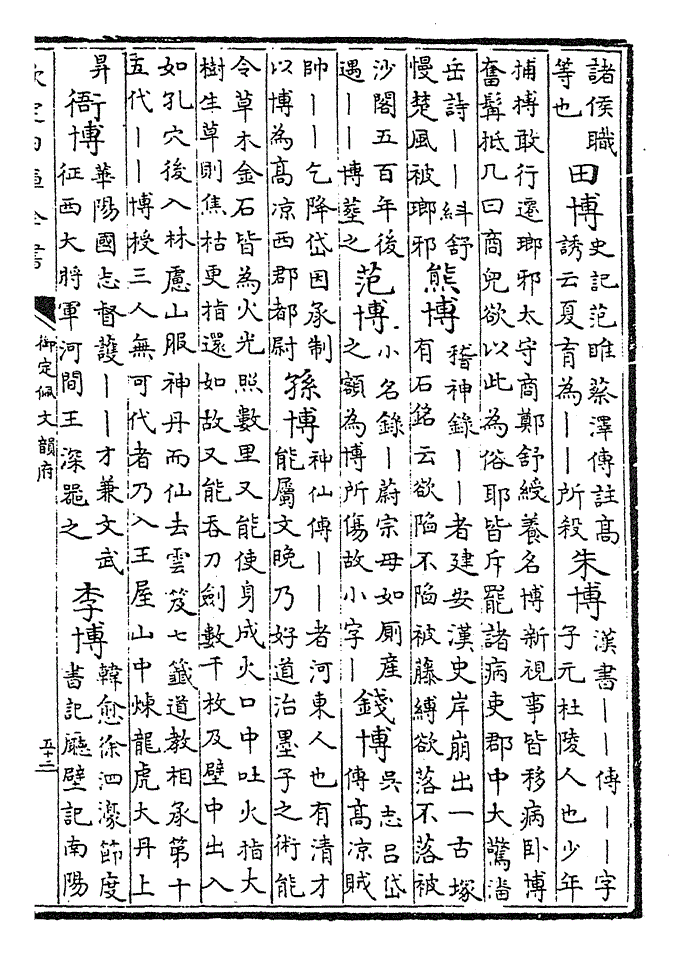 諸侯職
等也
田博
史記范睢蔡澤傳註高
誘云夏育為——所殺
朱博
漢書——傳——字
子元杜陵人也少年
捕搏敢行遷瑯邪太守商鄭舒緩養名博新視事皆移病卧博
奮髯抵几曰商兒欲以此為俗耶皆斥罷諸病吏郡中大驚淄
岳詩——斜舒
慢楚風被瑯邪
熊博
稽神錄——者建安漢史岸崩出一古塚
有石銘云欲陷不陷被藤縛欲落不落被
沙閣五百年後
遇——博塟之
范博
小名錄—蔚宗母如厠産
之額為博所傷故小字—
錢博
吳志吕岱
傳高凉賊
帥——乞降岱因承制
以博為高凉西郡都尉
孫博
神仙傳——者河東人也有清才
能屬文晚乃好道治墨子之術能
令草木金石皆為火光照數里又能使身成火口中吐火指大
樹生草則焦枯更指還如故又能吞刀劍數千枚及壁中出入
如孔穴後入林慮山服神丹而仙去雲笈七籤道教相承第十
五代——博授三人無可代者乃入王屋山中煉龍虎大丹上
昇
衙博
華陽國志督護——才兼文武
征西大將軍河間王深器之
李博
韓愈徐泗濠節度
書記廳壁記南陽
欽定四庫全書
御定佩文韻府
五十二